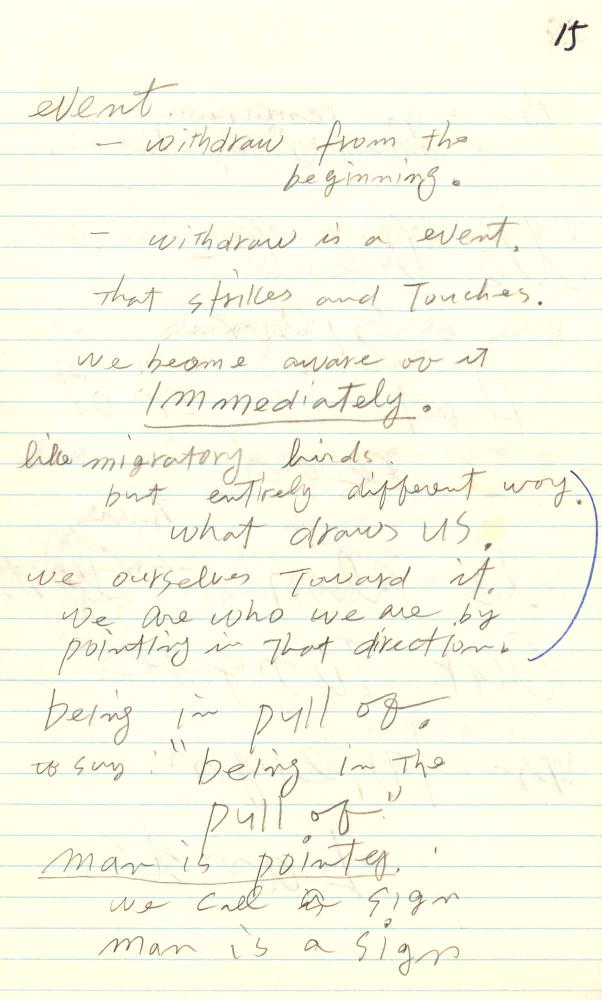 15
event.
- withdraw from the
beginning.
- withdraw is a event.
That strikes and Touches.
we become aware ov it
Immediately.
like migratory birds.
but entirely different way.
what draws us.
we ourselves Toward it.
we are who we are by
pointing in That direction.
being in pull of.
to say: "being in The
pull of"
man is pointer.
we call a sign
man is a sign